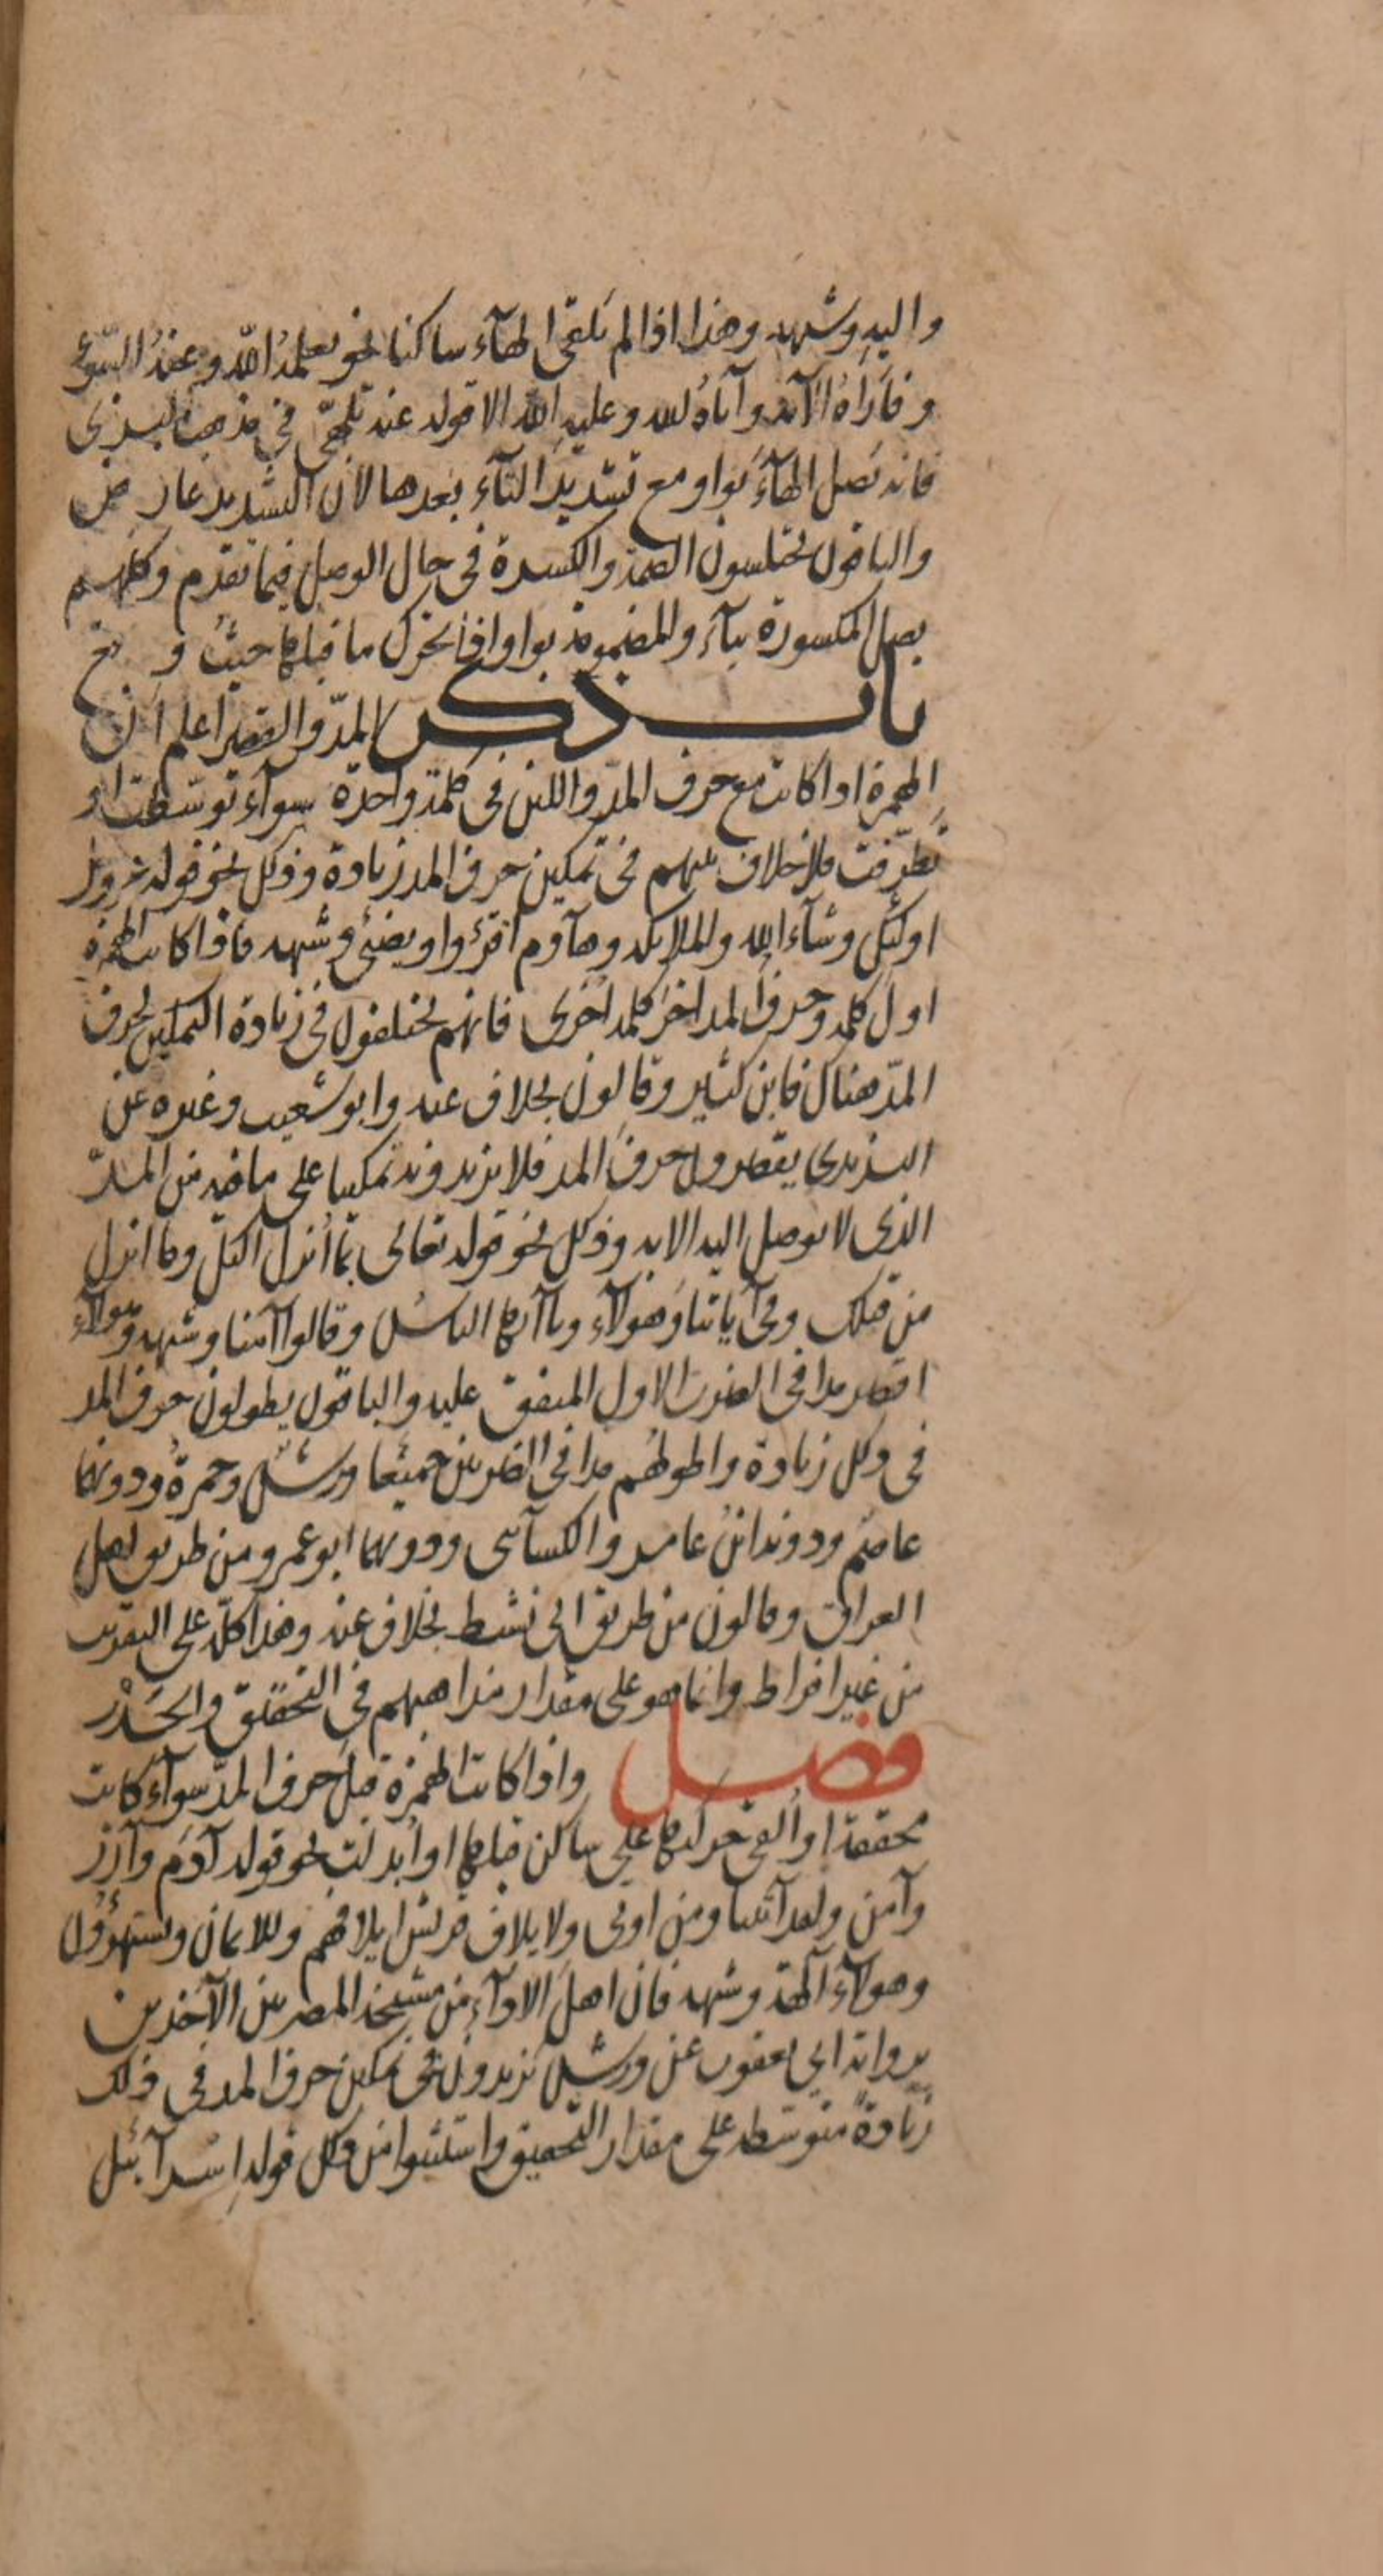 واليه وشبهه وهذا اذا لم تلقى الهآء ساكنا نحو يعلمه الله وعنه السّوء
و فاراه الآية وآتاه لله وعليه الله الا قوله عنه تلهّى في مذهب البزى
فانه يصل الهآء بواو مع تشديد التآء بعدها لان التشديد عارض
والباقون يختلسون الضمة والكسرة في حال الوصل فيما تقدم وكلهم
يصل المكسورة بيآء والمضمومة بواو اذا تحرك ما قبلها حيث وقع
باب ذكر المدّ والقصر اعلم ان
الهمزة اذا كانت مع حرف المد واللين في كلمة واحدة سوآء توسّطت او
تطرّفت فلا خلاف بينهم في تمكين حرف المد زيادة وذلك نحو قوله عز وجل
اولئك وشآء الله والملائكة وهآوم اقرؤا ويضئ وشبهه فاذا كانت الهمزة
اول كلمة وحرف المد اخر كلمة اخرى فانهم يختلفون في زيادة التمكين لحرف
المدّ هناك فابن كثير وقالون بخلاف عنه وابو شعيب وغيره عن
اليزيدى يقصرون حرف المد فلا يزيدونه تمكينا على ما فيه من المدّ
الذى لا يوصل اليه الا به وذلك نحو قوله تعالى بمآ أنزل اليك وما انزل
من قبلك وفي آياتنا وهولآء ويآ ايها الناس وقالوا آمنا وشبهه وهولآء
اقصر مدا في الضرب الاول المتفق عليه والباقون يطولون حرف المد
في ذلك زيادة واطولهم مدا في الضربين جميعا ورش وحمزة ودونهما
عاصم ودونه ابن عامر والكسآئى ودونهما ابو عمرو من طريق اهل
العراق وقالون من طريق ابى نشيط بخلاف عنه وهذا كله على التقريب
من غير افراط وانما هو على مقدار مذاهبهم في التحقيق والحَدْر
فصل واذا كانت الهمزة قبل حرف المدّ سوآء كانت
محققة او القى حركتها على ساكن قبلها او أبدلت نحو قوله آدم وآزر
وآمن ولقد آتينا ومن اوتى ولايلاف قريش ايلافهم وللايمان ويستهزؤن
وهولآء آلهة وشبهه فان اهل الادآء من مشيخة المصريين الآخذين
برواية ابي يعقوب عن ورش يزيدون في تمكين حرف المد في ذلك
زيادةً متوسّطة على مقدار التحقيق واستثنوا من ذلك قوله إسرآئيل